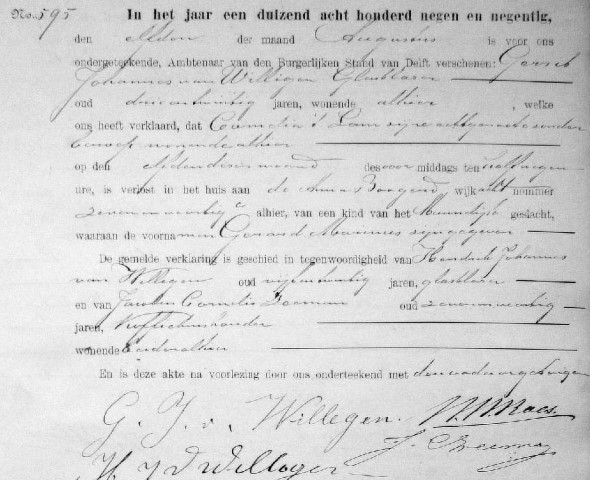 No. 595
In het jaar een duizend acht honderd negen en negentig,
den elfden der maand Augustus is voor ons
ondergeteekende, Ambtenaar van den Burgerlijken Stand van Delft verschenen: Gerrit
Johannes van Willigen Glasblazer
oud drie en twintig jaren, wonende alhier, welke
ons heeft verklaard, dat Cornelia 't Lam zijne echtgenoote zonder
beroep wonende alhier
op den elfden dezer maand des voor middags ten half negen
ure, is verlost in het huis aan de Anna Boogerd wijk acht nommer
zeven en veertig c alhier, van een kind van het Mannelijk geslacht,
waaraan de voornamen Gerard Marinus zijn gegeven
De gemelde verklaring is geschied in tegenwoordigheid van Hendrik Johannes
van Willigen oud vijf en twintig jaren, glasblazer
en van Cornelis oud zeven en veertig
jaren, Koffiehuishouder
wonende beiden alhier
En is deze akte na voorlezing door ons onderteekend met den vader en getuigen
G. J. v. Willegen. Maas.
J. C.
H J v Willegen